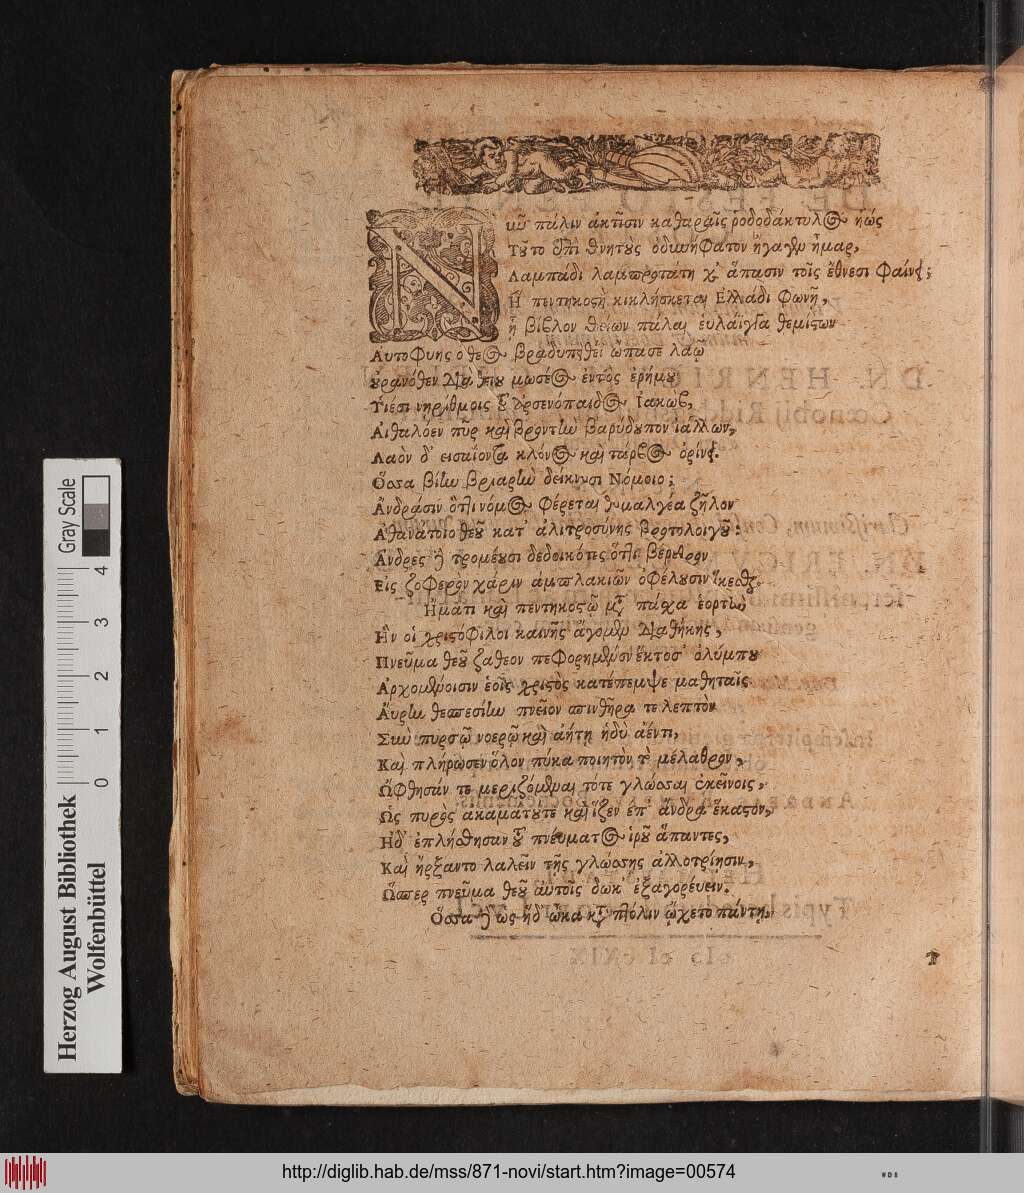 Νῦν πάλιν ἀκτῖσιν καθαραῖς ῥοδοδάκτυλος ἠώς
Τοῦτο ἐπὶ θνητοὺς ἤγαγεν ἦμαρ,
Λαμπάδι λαμπροτάτη καὶ ἅπασιν τοῖς ἔθνεσι φαίνει;
Ἣ πεντηκοστὴ κικλήσκεται Ἑλλάδι φωνῇ,
ᾗ βίβλον θείων πάλαι θεμίστων
Αυτοφυής ὁ θεὸς βραδυπειθεῖ ὤπασε λαῷ
ουρανόθεν διὰ μωσέος ἐντὸς ἐρήμου
Υἱέσι νηρίθμοις τοῦ ἀρσενόπαιδος Ἰακὼβ,
Αἰθαλόεν πῦρ καὶ βροντὴν βαρύδουπον ἰάλλων,
Λαὸν δ' εισαίοντα κλόνος καὶ τάρβος ὀρίνει.
Ὅσσα βίην βριαρὴν δείκνυσι Νόμοιο;
Ἀνδράσιν ὅτι νόμος φέρεται θυμαλγέα ζῆλον
Ἀθανάτοιο θεοῦ κατ' ἀλιτροσύνης βροτολοιγοῦ:
Ἄνδρες δὲ τρομέουσι δεδοικότες ὅτι βέρεθρον
Εἰς ζοφερὸν χάριν ἀμπλακιῶν ὀφέλουσιν ἱκέσθαι.
Ἠμάτι καὶ πεντηκοστῷ μετὰ πάσχα ἑορτὴν
Ἣν οἱ χριστόφιλοι καινῆς ἄγομεν διαθήκης,
Πνεῦμα θεοῦ ζάθεον πεφορημένον ἔκτοσ' ὀλύμπου
Ἀρχομένοισιν ἑοῖς χριστὸς κατέπεμψε μαθηταῖς
Αὔρην θεσπεσίην πνεῖον σπινθῆρά τε λεπτὸν
Σὺν πυρσῷ νοερῷ καὶ ἀήτῃ ἡδὺ ἀέντι,
Καὶ πλήρωσεν ὅλον πύκα ποιητὸν τὸ μέλαθρον,
Ὤφθησάν τε μεριζόμεναι τότε γλώσσαι ἐκεῖνοις,
Ὡς πυρὸς ἀκαμάτου τε καὶ ἷζεν ἐπ' ἄνδρα ἕκαστον,
Ηδ' ἐπλήσθησαν τοῦ πνέυματος ἱροῦ ἅπαντες,
Καὶ ἤρξαντο λαλεῖν τῆς γλώσσης ἀλλοτρίησιν,
Ὥσπερ πνεῦμα θεοῦ ἀυτοῖς δωκ' ἐξαγορέυειν.
Ὅσσα δὲ ὡς ἥδ' ὦκα κατὰ πτόλιν ᾤχετο πάντη.
Herzog August Bibliothek
Wolfenbüttel
Gray Scale
0 1 2 3 4
http://diglib.hab.de/mss/871-novi/start.htm?image=00574